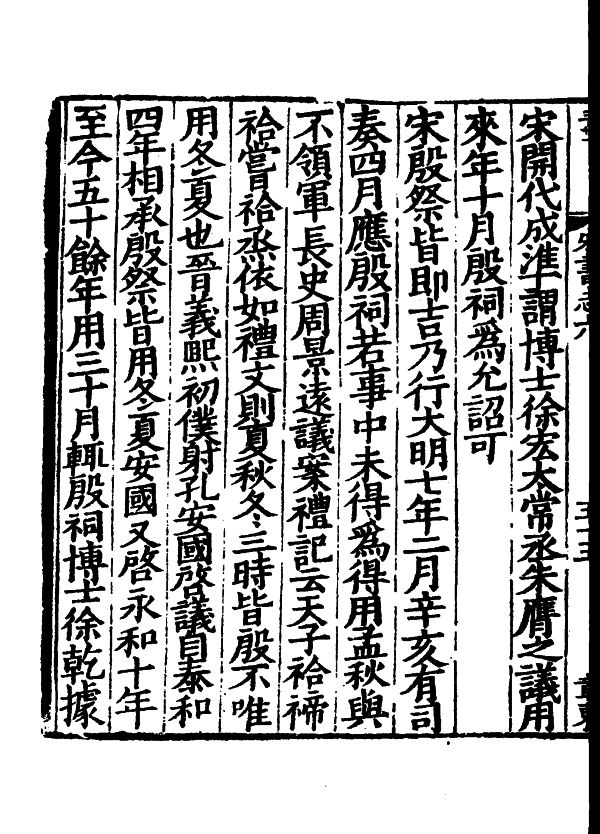 宋開代成準謂博士徐宏太常丞朱膺之議用
來年十月殷祠爲允詔可
宋殷祭皆即吉乃行大明七年二月辛亥有司
奏四月應殷祠若事中未得爲得用孟秋與
不領軍長史周景遠議案禮記云天子祫禘
祫嘗祫烝依如禮文則夏秋冬三時皆殷不唯
用冬夏也晉義熙初僕射孔安國啓議自泰和
四年相承殷祭皆用冬夏安國又啓永和十年
至今五十餘年用三十月輒殷祠博士徐乾據